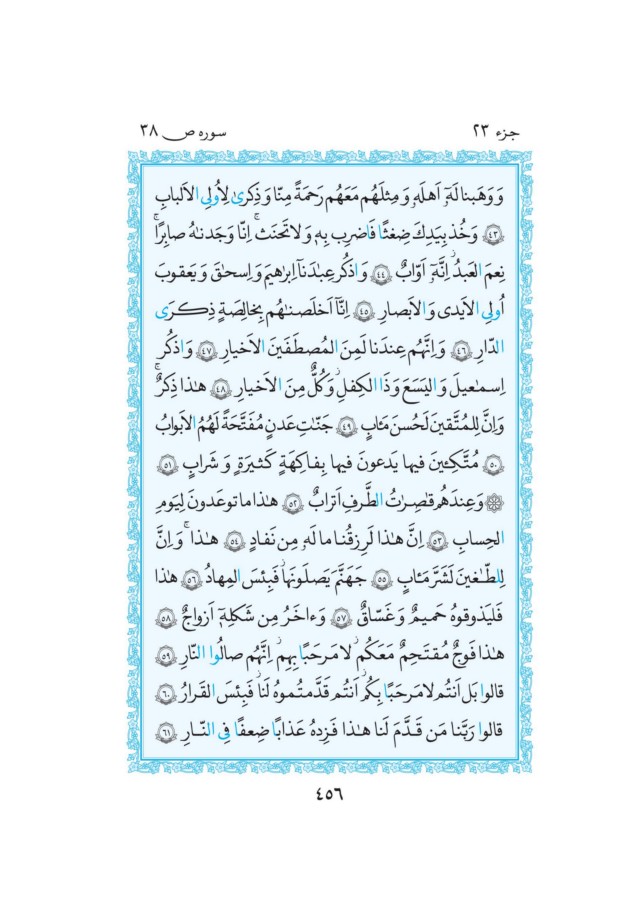 جزء ٢٣
سوره ص ٣٨
وَ وَهَبنا لَهٓ اَهلَهٗ وَ مِثلَهُم مَعَهُم رَحمَةً مِنّا وَ ذِكرىٰ لِاُولِی الاَلبابِ
﴿٤٣﴾ وَ خُذ بِيَدِكَ ضِغثًا فَاضرِب بِهٖ وَ لا تَحنَث ۗ اِنّا وَجَدنٰهُ صابِرًا ۚ
نِعمَ العَبدُ ۖ اِنَّهٓ اَوّابٌ ﴿٤٤﴾ وَ اذكُر عِبٰدَنآ اِبرٰهيمَ وَ اِسحٰقَ وَ يَعقوبَ
اُولِی الاَيدی وَ الاَبصارِ ﴿٤٥﴾ اِنّآ اَخلَصنٰهُم بِخالِصَةٍ ذِكرَى
الدّارِ ﴿٤٦﴾ وَ اِنَّهُم عِندَنا لَمِنَ المُصطَفَينَ الاَخيارِ ﴿٤٧﴾ وَ اذكُر
اِسمٰعيلَ وَ اليَسَعَ وَ ذَا الكِفلِ ۖ وَ كُلٌّ مِنَ الاَخيارِ ﴿٤٨﴾ هٰذا ذِكرٌ ۚ
وَ اِنَّ لِلمُتَّقينَ لَحُسنَ مَـٔابٍ ﴿٤٩﴾ جَنّٰتِ عَدنٍ مُفَتَّحَةً لَهُمُ الاَبوابُ
﴿٥٠﴾ مُتَّكِـٔينَ فيها يَدعونَ فيها بِفاكِهَةٍ كَثيرَةٍ وَ شَرابٍ ﴿٥١﴾
۞ وَ عِندَهُم قٰصِرٰتُ الطَّرفِ اَترابٌ ﴿٥٢﴾ هٰذا ما توعَدونَ لِيَومِ
الحِسابِ ﴿٥٣﴾ اِنَّ هٰذا لَرِزقُنا ما لَهٗ مِن نَفادٍ ﴿٥٤﴾ هٰذا ۚ وَ اِنَّ
لِلطّٰغينَ لَشَرَّ مَـٔابٍ ﴿٥٥﴾ جَهَنَّمَ يَصلَونَها فَبِئسَ المِهادُ ﴿٥٦﴾ هٰذا
فَليَذوقوهُ حَميمٌ وَ غَسّاقٌ ﴿٥٧﴾ وَ ءاخَرُ مِن شَكلِهٓ اَزواجٌ ﴿٥٨﴾
هٰذا فَوجٌ مُقتَحِمٌ مَعَكُم ۖ لا مَرحَبًا بِهِم ۚ اِنَّهُم صالُوا النّارِ ﴿٥٩﴾
قالوا بَل اَنتُم لا مَرحَبًا بِكُم ۖ اَنتُم قَدَّمتُموهُ لَنا ۖ فَبِئسَ القَرارُ ﴿٦٠﴾
قالوا رَبَّنا مَن قَدَّمَ لَنا هٰذا فَزِدهُ عَذابًا ضِعفًا فِی النّارِ ﴿٦١﴾
٤٥٦